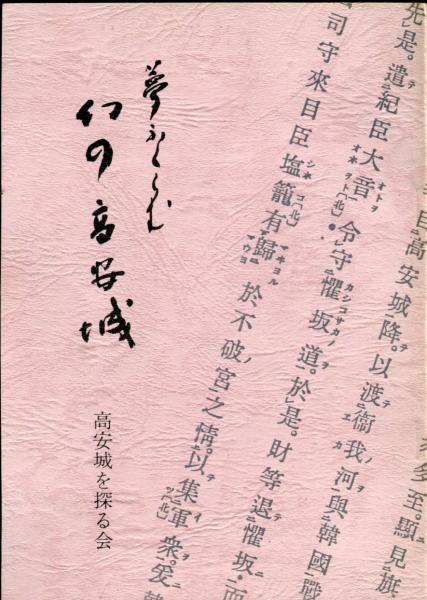 夢ふくらむ
幻の高安城
高安城を探る会
先是。遣紀臣大音令守懼坂道。於是。財等退懼坂而
司守來目臣塩籠有歸於不破宮之情。以集軍衆。爰
自高安城降。以渡衞我河與韓國戰
多至。顯見旗